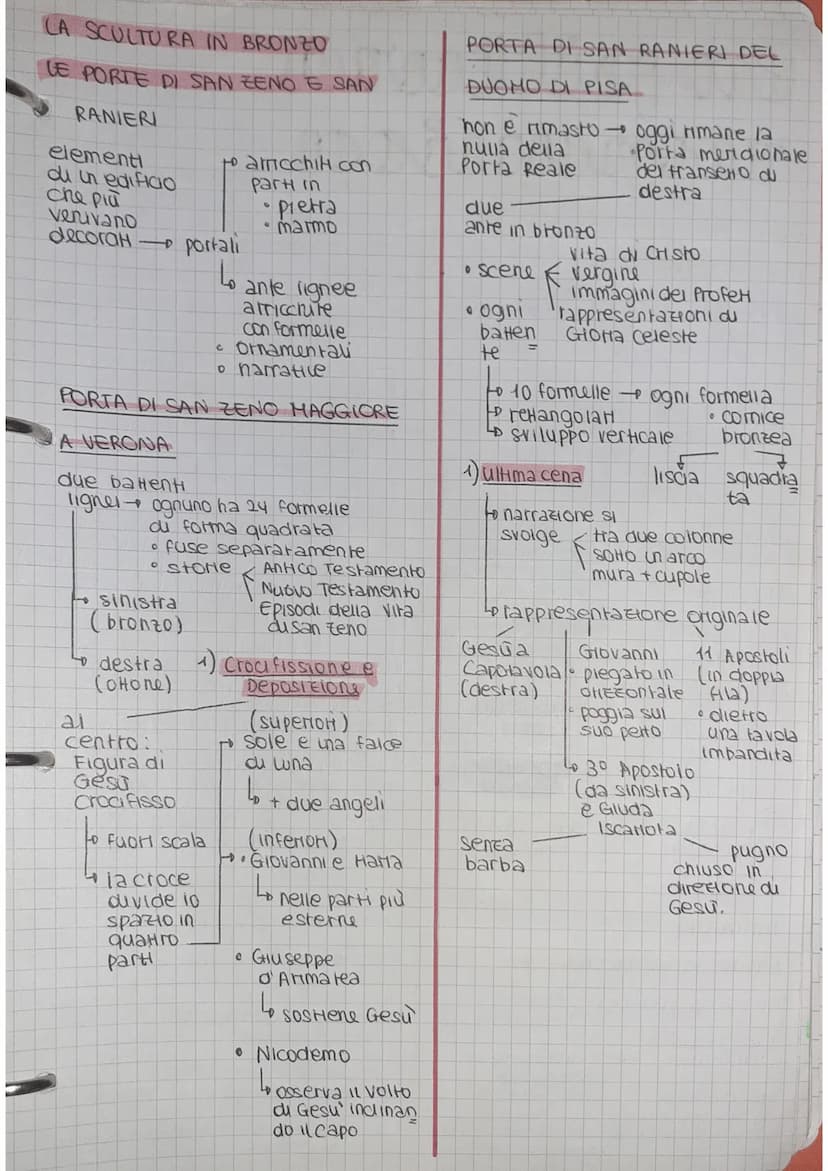 LA SCULTURA IN BRONZO
LE PORTE DI SAN ZENO E SAN
RANIERI
elementi
di un edificio
che più
venivano
decorati → portali
→ arricchiti con
parti in
• pietra
• marmo
↳ ante lignee
arricchite
con formelle
• ornamentali
• narrative
PORTA DI SAN ZENO MAGGIORE
A VERONA
due battenti
lignei → ognuno ha 24 formelle
di forma quadrata
• fuse separatamente
• storie < Antico Testamento
Nuovo Testamento
Episodi della vita
di San Zeno
→ sinistra
(bronzo)
↳ destra
(ottone)
1) Crocifissione e
Deposizione
al
centro:
Figura di
Gesù
crocifisso
→ fuori scala
↳ la croce
divide lo
spazio in
quattro
parti
(superiori)
→ sole e una falce
di luna
↳ + due angeli
(inferiori)
→ • Giovanni e Maria
↳ nelle parti più
esterne
• Giuseppe
d'Arimatea
↳ sostiene Gesù
• Nicodemo
↳ osserva il volto
di Gesù inclinan
do il capo
PORTA DI SAN RANIERI DEL
DUOMO DI PISA
non è rimasto → oggi rimane la
nulla della porta meridionale
Porta Reale del transetto di
destra
due
ante in bronzo
• scene < vita di Cristo
vergine
immagini dei Profeti
rappresentazioni di
Gloria celeste
• ogni
batten
te
→ 10 formelle → ogni formella
→ rettangolari • cornice
↳ sviluppo verticale bronzea
liscia squadra
ta
1) Ultima cena
→ narrazione si
svolge < tra due colonne
sotto un arco
mura + cupole
↳ rappresentazione originale
Gesù a
Capotavola
(destra)
Giovanni
• piegato in
orizzontale
• poggia sul
suo petto
11 Apostoli
(in doppia
fila)
• dietro
una tavola
imbandita
↳ 3° Apostolo
(da sinistra)
è Giuda
Iscariota
senza
barba
pugno
chiuso in
direzione di
Gesù.